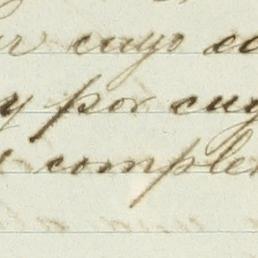 cuyo
y por cuy
comple